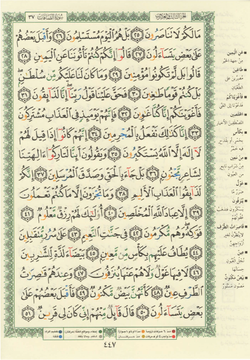 ٣٧
مَا لَكُمْ لَا تَنَاصَرُونَ ٢٥ بَلْ هُمُ ٱلْيَوْمَ مُسْتَسْلِمُونَ ٢٦ وَأَقْبَلَ بَعْضُهُمْ
عَلَىٰ بَعْضٍ يَتَسَآءَلُونَ ٢٧ قَالُوٓا۟ إِنَّكُمْ كُنتُمْ تَأْتُونَنَا عَنِ ٱلْيَمِينِ
٢٨ قَالُوا۟ بَل لَّمْ تَكُونُوا۟ مُؤْمِنِينَ ٢٩ وَمَا كَانَ لَنَا عَلَيْكُم مِّن سُلْطَٰنٍۭ
بَلْ كُنتُمْ قَوْمًا طَٰغِينَ ٣٠ فَحَقَّ عَلَيْنَا قَوْلُ رَبِّنَآ إِنَّا لَذَآئِقُونَ
٣١ فَأَغْوَيْنَٰكُمْ إِنَّا كُنَّا غَٰوِينَ ٣٢ فَإِنَّهُمْ يَوْمَئِذٍ فِى ٱلْعَذَابِ مُشْتَرِكُونَ
٣٣ إِنَّا كَذَٰلِكَ نَفْعَلُ بِٱلْمُجْرِمِينَ ٣٤ إِنَّهُمْ كَانُوٓا۟ إِذَا قِيلَ لَهُمْ
لَآ إِلَٰهَ إِلَّا ٱللَّهُ يَسْتَكْبِرُونَ ٣٥ وَيَقُولُونَ أَئِنَّا لَتَارِكُوٓا۟ ءَالِهَتِنَا
لِشَاعِرٍ مَّجْنُونٍۭ ٣٦ بَلْ جَآءَ بِٱلْحَقِّ وَصَدَّقَ ٱلْمُرْسَلِينَ ٣٧ إِنَّكُمْ
لَذَآئِقُوا۟ ٱلْعَذَابِ ٱلْأَلِيمِ ٣٨ وَمَا تُجْزَوْنَ إِلَّا مَا كُنتُمْ تَعْمَلُونَ
٣٩ إِلَّا عِبَادَ ٱللَّهِ ٱلْمُخْلَصِينَ ٤٠ أُو۟لَٰٓئِكَ لَهُمْ رِزْقٌ مَّعْلُومٌ ٤١
فَوَٰكِهُ وَهُم مُّكْرَمُونَ ٤٢ فِى جَنَّٰتِ ٱلنَّعِيمِ ٤٣ عَلَىٰ سُرُرٍ مُّتَقَٰبِلِينَ
٤٤ يُطَافُ عَلَيْهِم بِكَأْسٍ مِّن مَّعِينٍۭ ٤٥ بَيْضَآءَ لَذَّةٍ لِّلشَّٰرِبِينَ
٤٦ لَا فِيهَا غَوْلٌ وَلَا هُمْ عَنْهَا يُنزَفُونَ ٤٧ وَعِندَهُمْ قَٰصِرَٰتُ
ٱلطَّرْفِ عِينٌ ٤٨ كَأَنَّهُنَّ بَيْضٌ مَّكْنُونٌ ٤٩ فَأَقْبَلَ بَعْضُهُمْ عَلَىٰ
بَعْضٍ يَتَسَآءَلُونَ ٥٠ قَالَ قَآئِلٌ مِّنْهُمْ إِنِّى كَانَ لِى قَرِينٌ ٥١
٤٤٧